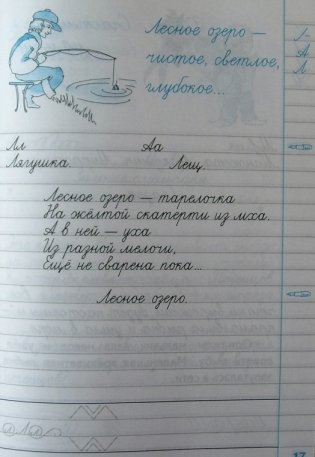 Лесное озеро —
чистое, светлое,
глубокое...
Л
А
Л
Лл Аа
Лягушка. Лещ.
Лесное озеро — тарелочка
На жёлтой скатерти из мха.
А в ней — уха
Из разной мелочи,
Ещё не сварена пока...
Лесное озеро.
17